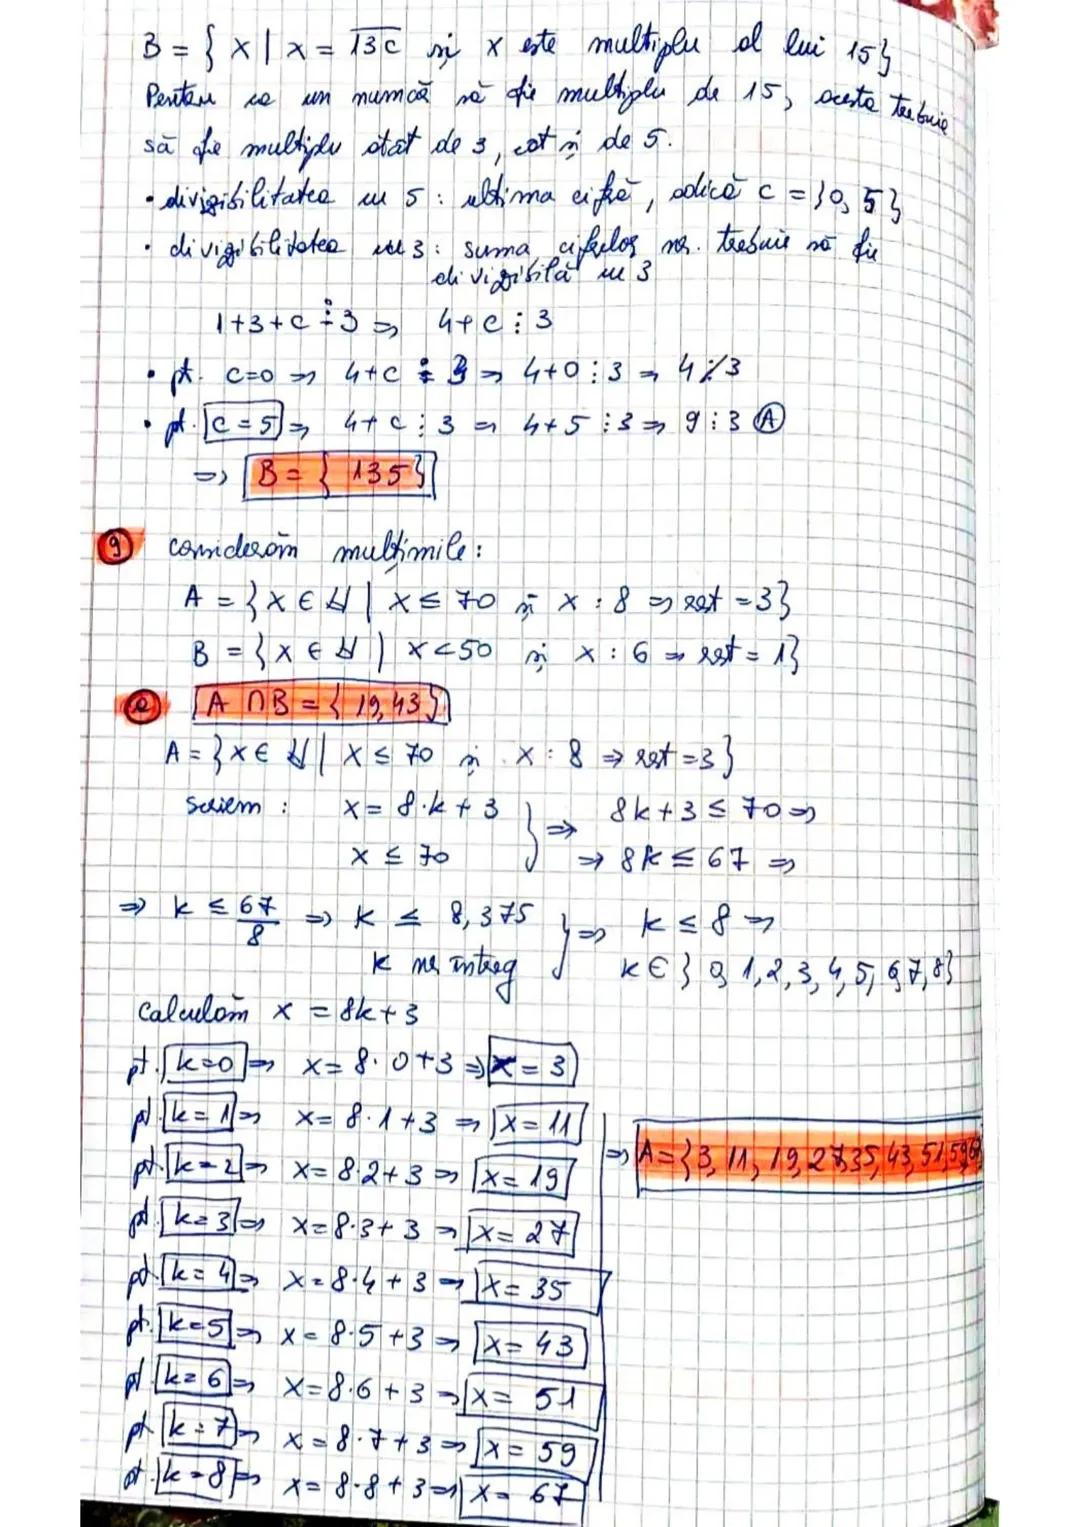 B = { x | x = 13c și x este multiplu al lui 15}
Pentru ca un număr să fie multiplu de 15, acesta trebuie
să fie multiplu atât de 3, cât și de 5.
• divizibilitatea cu 5 : ultima cifră, adică c = {0, 5}
• divizibilitatea cu 3 : suma cifrelor nr. trebuie să fie
divizibilă cu 3
1+3+c ⋮ 3 ⇒ 4+c ⋮ 3
• pt. c=0 ⇒ 4+c ⋮ 3 ⇒ 4+0 ⋮ 3 ⇒ 4 ⋮̸ 3
• pt. c = 5 ⇒ 4+c ⋮ 3 ⇒ 4+5 ⋮ 3 ⇒ 9 ⋮ 3 A
⇒ B = { 135}
9 considerăm mulțimile :
A = {x ∈ ℕ | x ≤ 70 și x : 8 ⇒ rest = 3}
B = {x ∈ ℕ | x < 50 și x : 6 ⇒ rest = 1}
a A ∩ B = { 19, 43}
A = {x ∈ ℕ | x ≤ 70 și x : 8 ⇒ rest = 3}
scriem : x = 8·k + 3 } ⇒ 8k + 3 ≤ 70 ⇒
x ≤ 70 ⇒ 8k ≤ 67 ⇒
⇒ k ≤ 67/8 ⇒ k ≤ 8,375 } ⇒ k ≤ 8 ⇒
k nr întreg k ∈ { 0, 1, 2, 3, 4, 5, 6, 7, 8}
Calculăm x = 8k + 3
pt. k=0 ⇒ x = 8·0+3 ⇒ x = 3
pt. k = 1 ⇒ x = 8·1+3 ⇒ x = 11
pt. k = 2 ⇒ x = 8·2+3 ⇒ x = 19 ⇒ A = {3, 11, 19, 27, 35, 43, 51, 59, 67
pt. k = 3 ⇒ x = 8·3+3 ⇒ x = 27
pt. k = 4 ⇒ x = 8·4 + 3 ⇒ x = 35
pt. k = 5 ⇒ x = 8·5 + 3 ⇒ x = 43
pt. k = 6 ⇒ x = 8·6 + 3 ⇒ x = 51
pt. k = 7 ⇒ x = 8·7 + 3 ⇒ x = 59
pt. k = 8 ⇒ x = 8·8 + 3 ⇒ x = 67